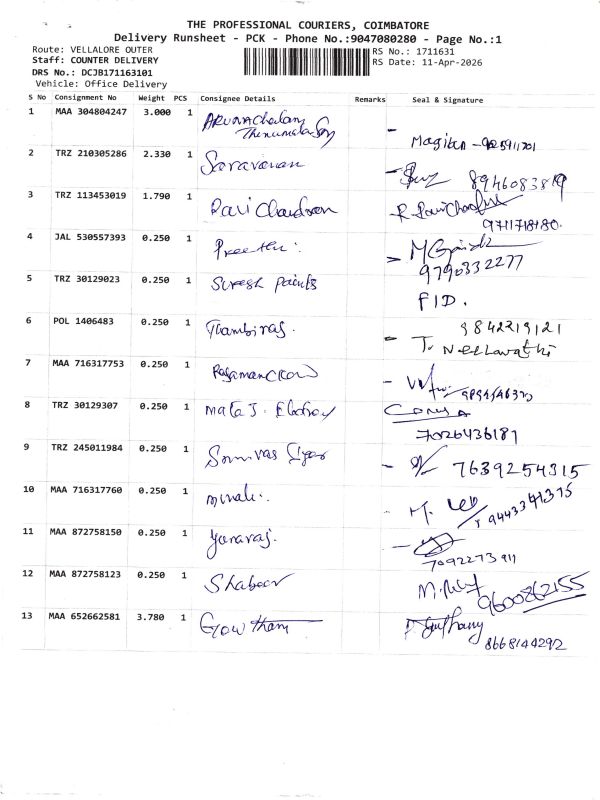 THE PROFESSIONAL COURIERS, COIMBATORE
Delivery Runsheet - PCK - Phone No.:9047080280 - Page No.:1
Route: VELLALORE OUTER
RS No.: 1711631
Staff: COUNTER DELIVERY
RS Date: 11-Apr-2026
DRS No.: DCJB171163101
Vehicle: Office Delivery
S No Consignment No Weight PCS Consignee Details Remarks Seal & Signature
1 MAA 304804247 3.000 1 Arunachalam
2 TRZ 210305286 2.330 1 Saravanan
8946083819
3 TRZ 113453019 1.790 1 Ravi Chandran R. Ravichandran
9711718180.
4 JAL 530557393 0.250 1 Preethi
9790332277
5 TRZ 30129023 0.250 1 Suresh Paints
FID.
6 POL 1406483 0.250 1 Thambiraj.
9842219121
7 MAA 716317753 0.250 1
8 TRZ 30129307 0.250 1
7026436181
9 TRZ 245011984 0.250 1
7639254315
10 MAA 716317760 0.250 1
9443341375
11 MAA 872758150 0.250 1 Yuvaraj.
7092273911
12 MAA 872758123 0.250 1 Shabeer
9600862155
13 MAA 652662581 3.780 1 Gowtham
8668144292